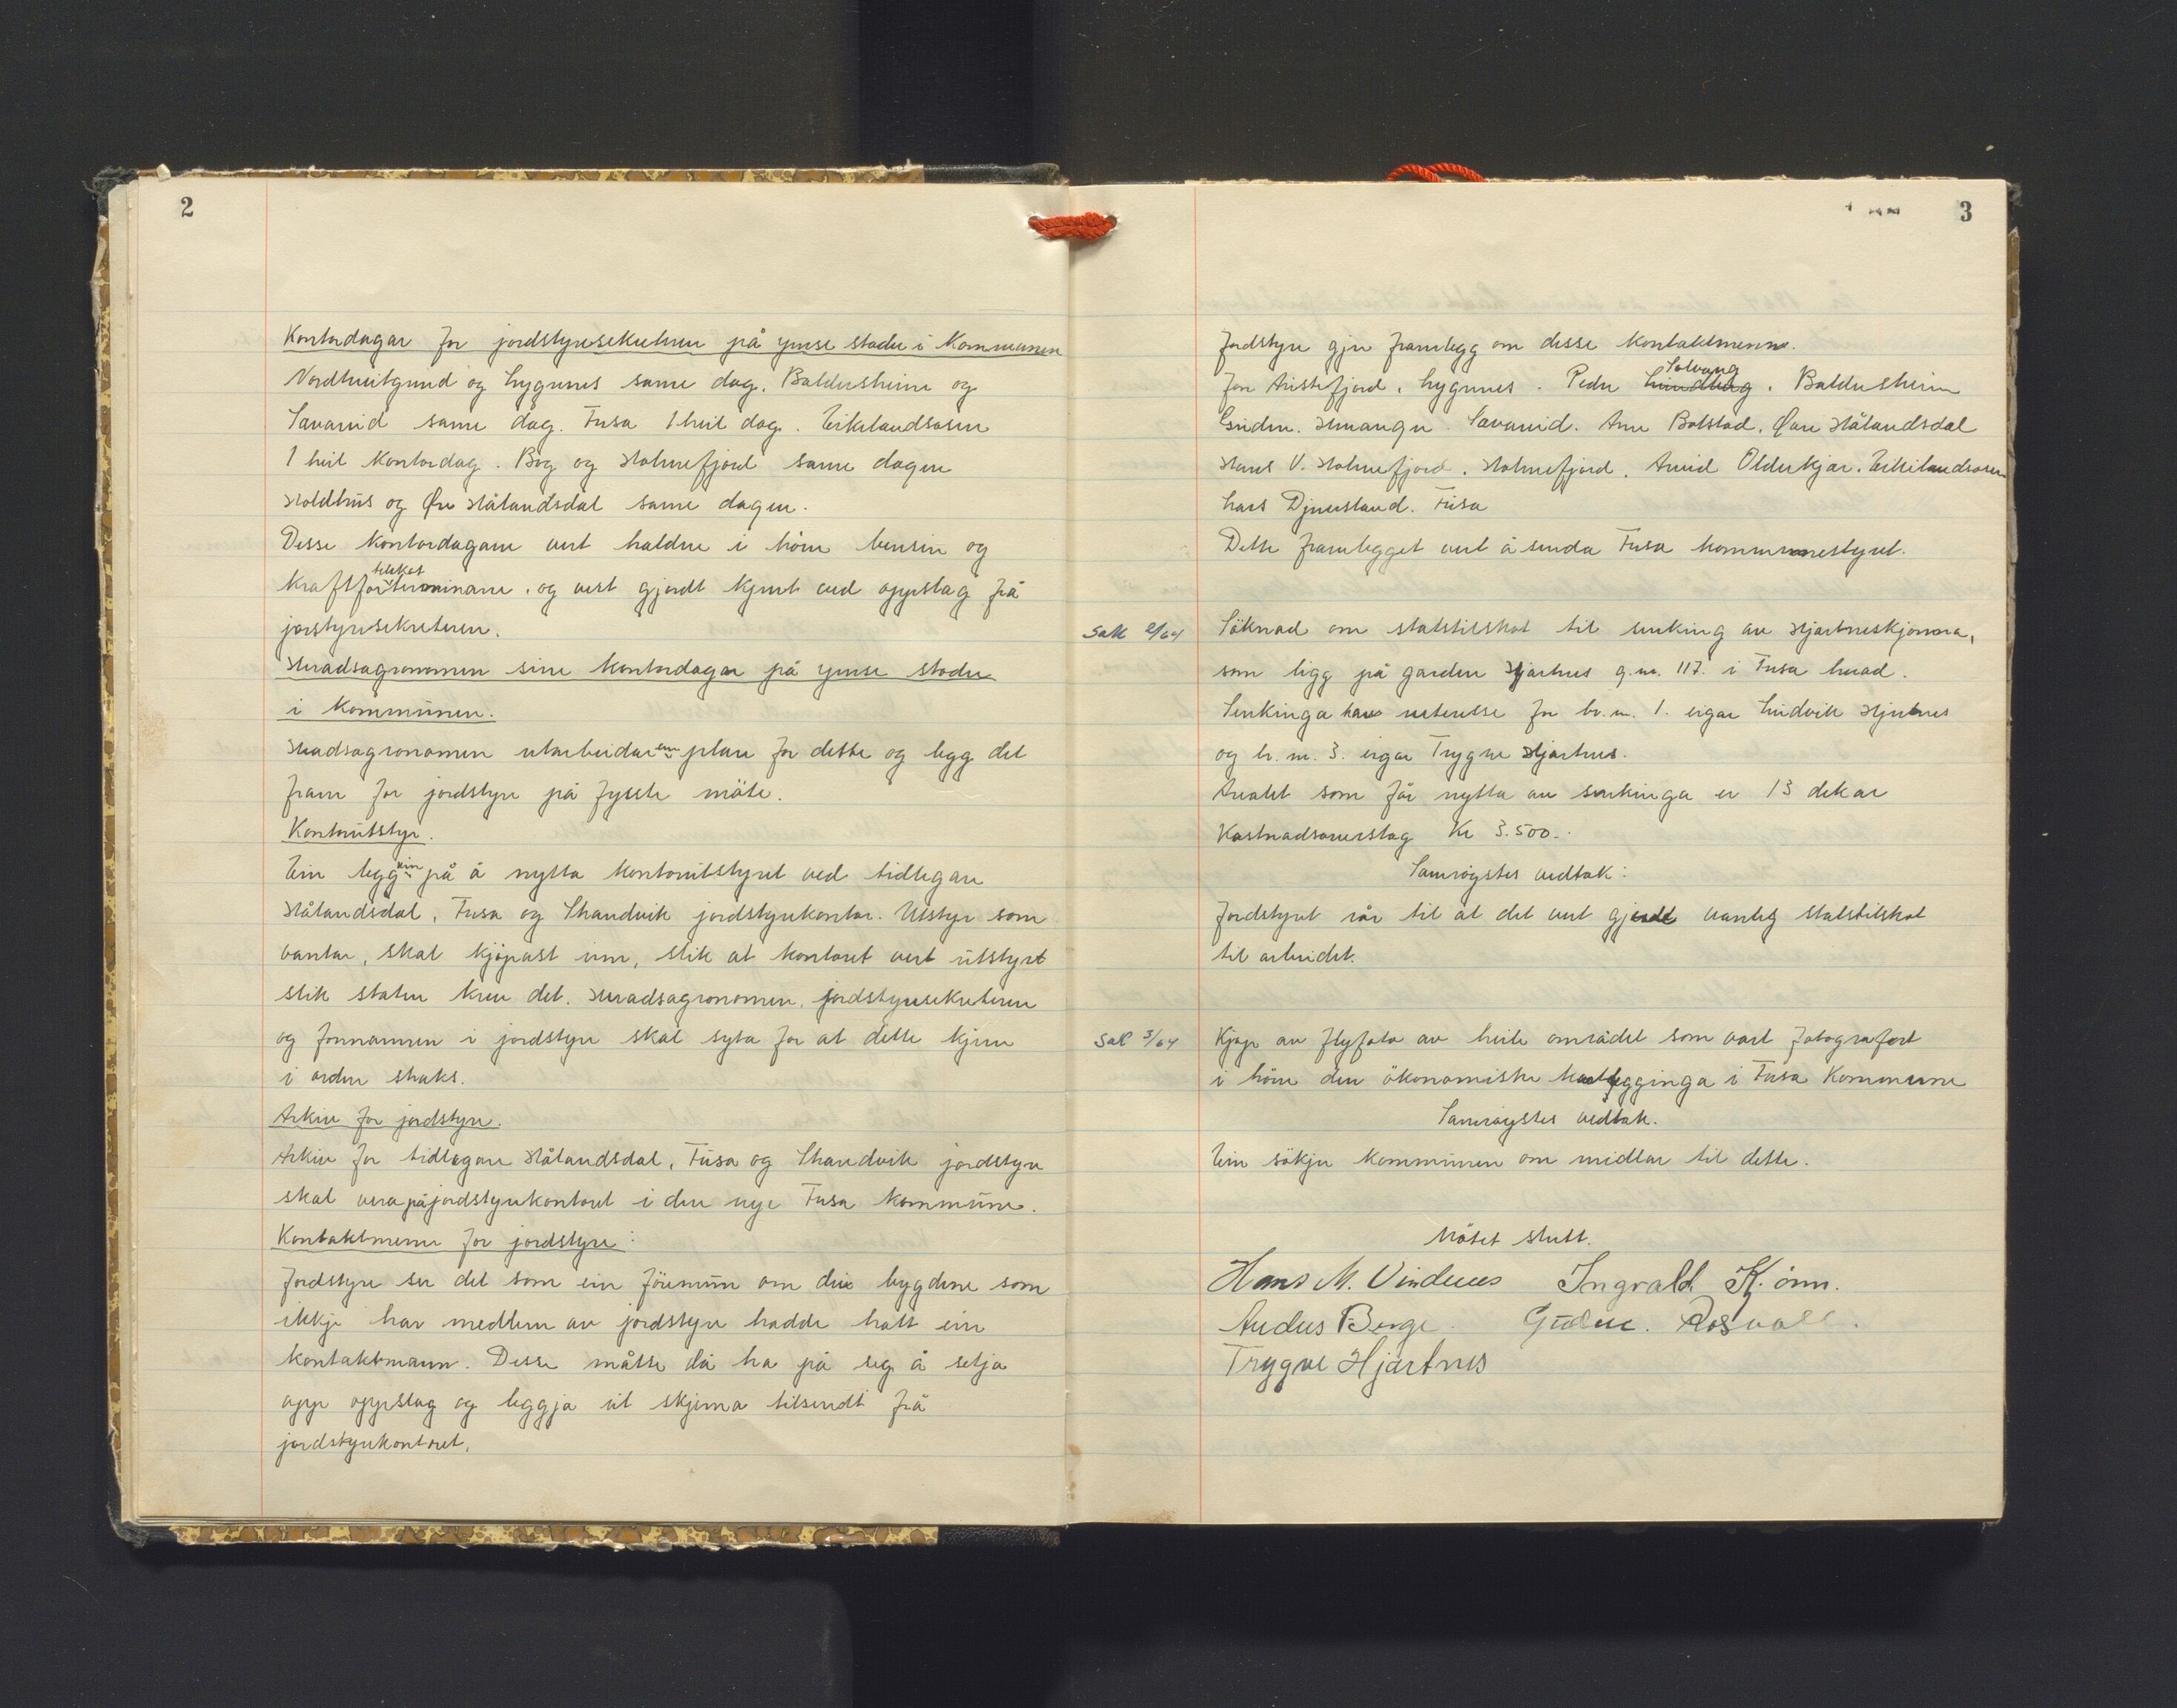 2
Kontordagar for jordstyresekretæren på ymse stader i Kommunen
Nordtveitgrend og Lygnnes same dag. Baldersheim og
Sævareid same dag. Fusa 1 heil dag. Eikelandsosen
1 heil Kontordag. Bog og Holmefjord same dagen
Holdhus og Øvre Hålandsdal same dagen.
Desse Kontordagane vert haldne i höve bensin og
tilskot
kraftfôrterminane, og vert gjordt kjent ved oppslag frå
jorstyresekretæren.
Heradsagronomen sine kontordagar på ymse stader
i Kommunen.
Heradsagronomen utarbeidar ein plan for dette og legg det
fram for jordstyre på fyrste möte.
Kontorutstyr.
Ein legg vin på å nytta kontorutstyret ved tidlegare
Hålandsdal, Fusa og Strandvik jordstyrekontor. Utstyr som
vantar, skal kjöpast inn, slik at kontoret vert utstyrt
slik staten krev det. Heradsagronomen, jordstyresekretæren
og formannen i jordstyre skal syta for at dette kjem
i orden straks.
Arkiv for jordstyre.
Arkiv for tidlegare Hålandsdal, Fusa og Strandvik jordstyre
skal vera på jordstyrekontoret i den nye Fusa kommune.
Kontaktmenn for jordstyre:
Jordstyre ser det som ein föremun om dei bygdene som
ikkje har medlem av jordstyre hadde hatt ein
kontaktmann. Desse måtte då ha på seg å setja
opp oppslag og leggja ut skjema tilsendt frå
jordstyrekontoret.
3
Jordstyre gjer framlegg om desse kontaktmenn.
Solvang
Jon Aristefjord, Lygnnes. Peder Lindberg, Baldersheim
Hevangen. Sævareid. Arne Botstad, Øvre Hålandsdal
Hans V. Holmefjord, Holmefjord. Arvid Olderkjær. Eikelandsosen
Lars Djuvsland. Fusa
Dette framlegget vert å senda Fusa kommunestyret.
Sak 2/64
Söknad om statstilskot til senking av Hjartnestjonna,
som ligg på garden Hjartnes g.nr. 117. i Fusa herad.
Senkinga har interesse for br.nr. 1. eigar Ludvik Hjartnes
og br. nr. 3. eigar Trygve Hjartnes.
Arealet som får nytta av senkinga er 13 dekar
Kostnadsoverslag Kr 3.500.-
Samrøystes vedtak:
Jordstyret rår til at det vert gjordt vanleg statstilskot
til arbeidet.
Sak 3/64
Kjöp av flyfoto av heile området som vart fotografert
i höve den ökonomiske kartlegginga i Fusa Kommune
Samröystes vedtak.
Ein sökjer kommunen om midlar til dette.
Mötet slutt.
Hans M. Vindenes Ingvald K. önn.
Anders Berge.
Trygve Hjartnes